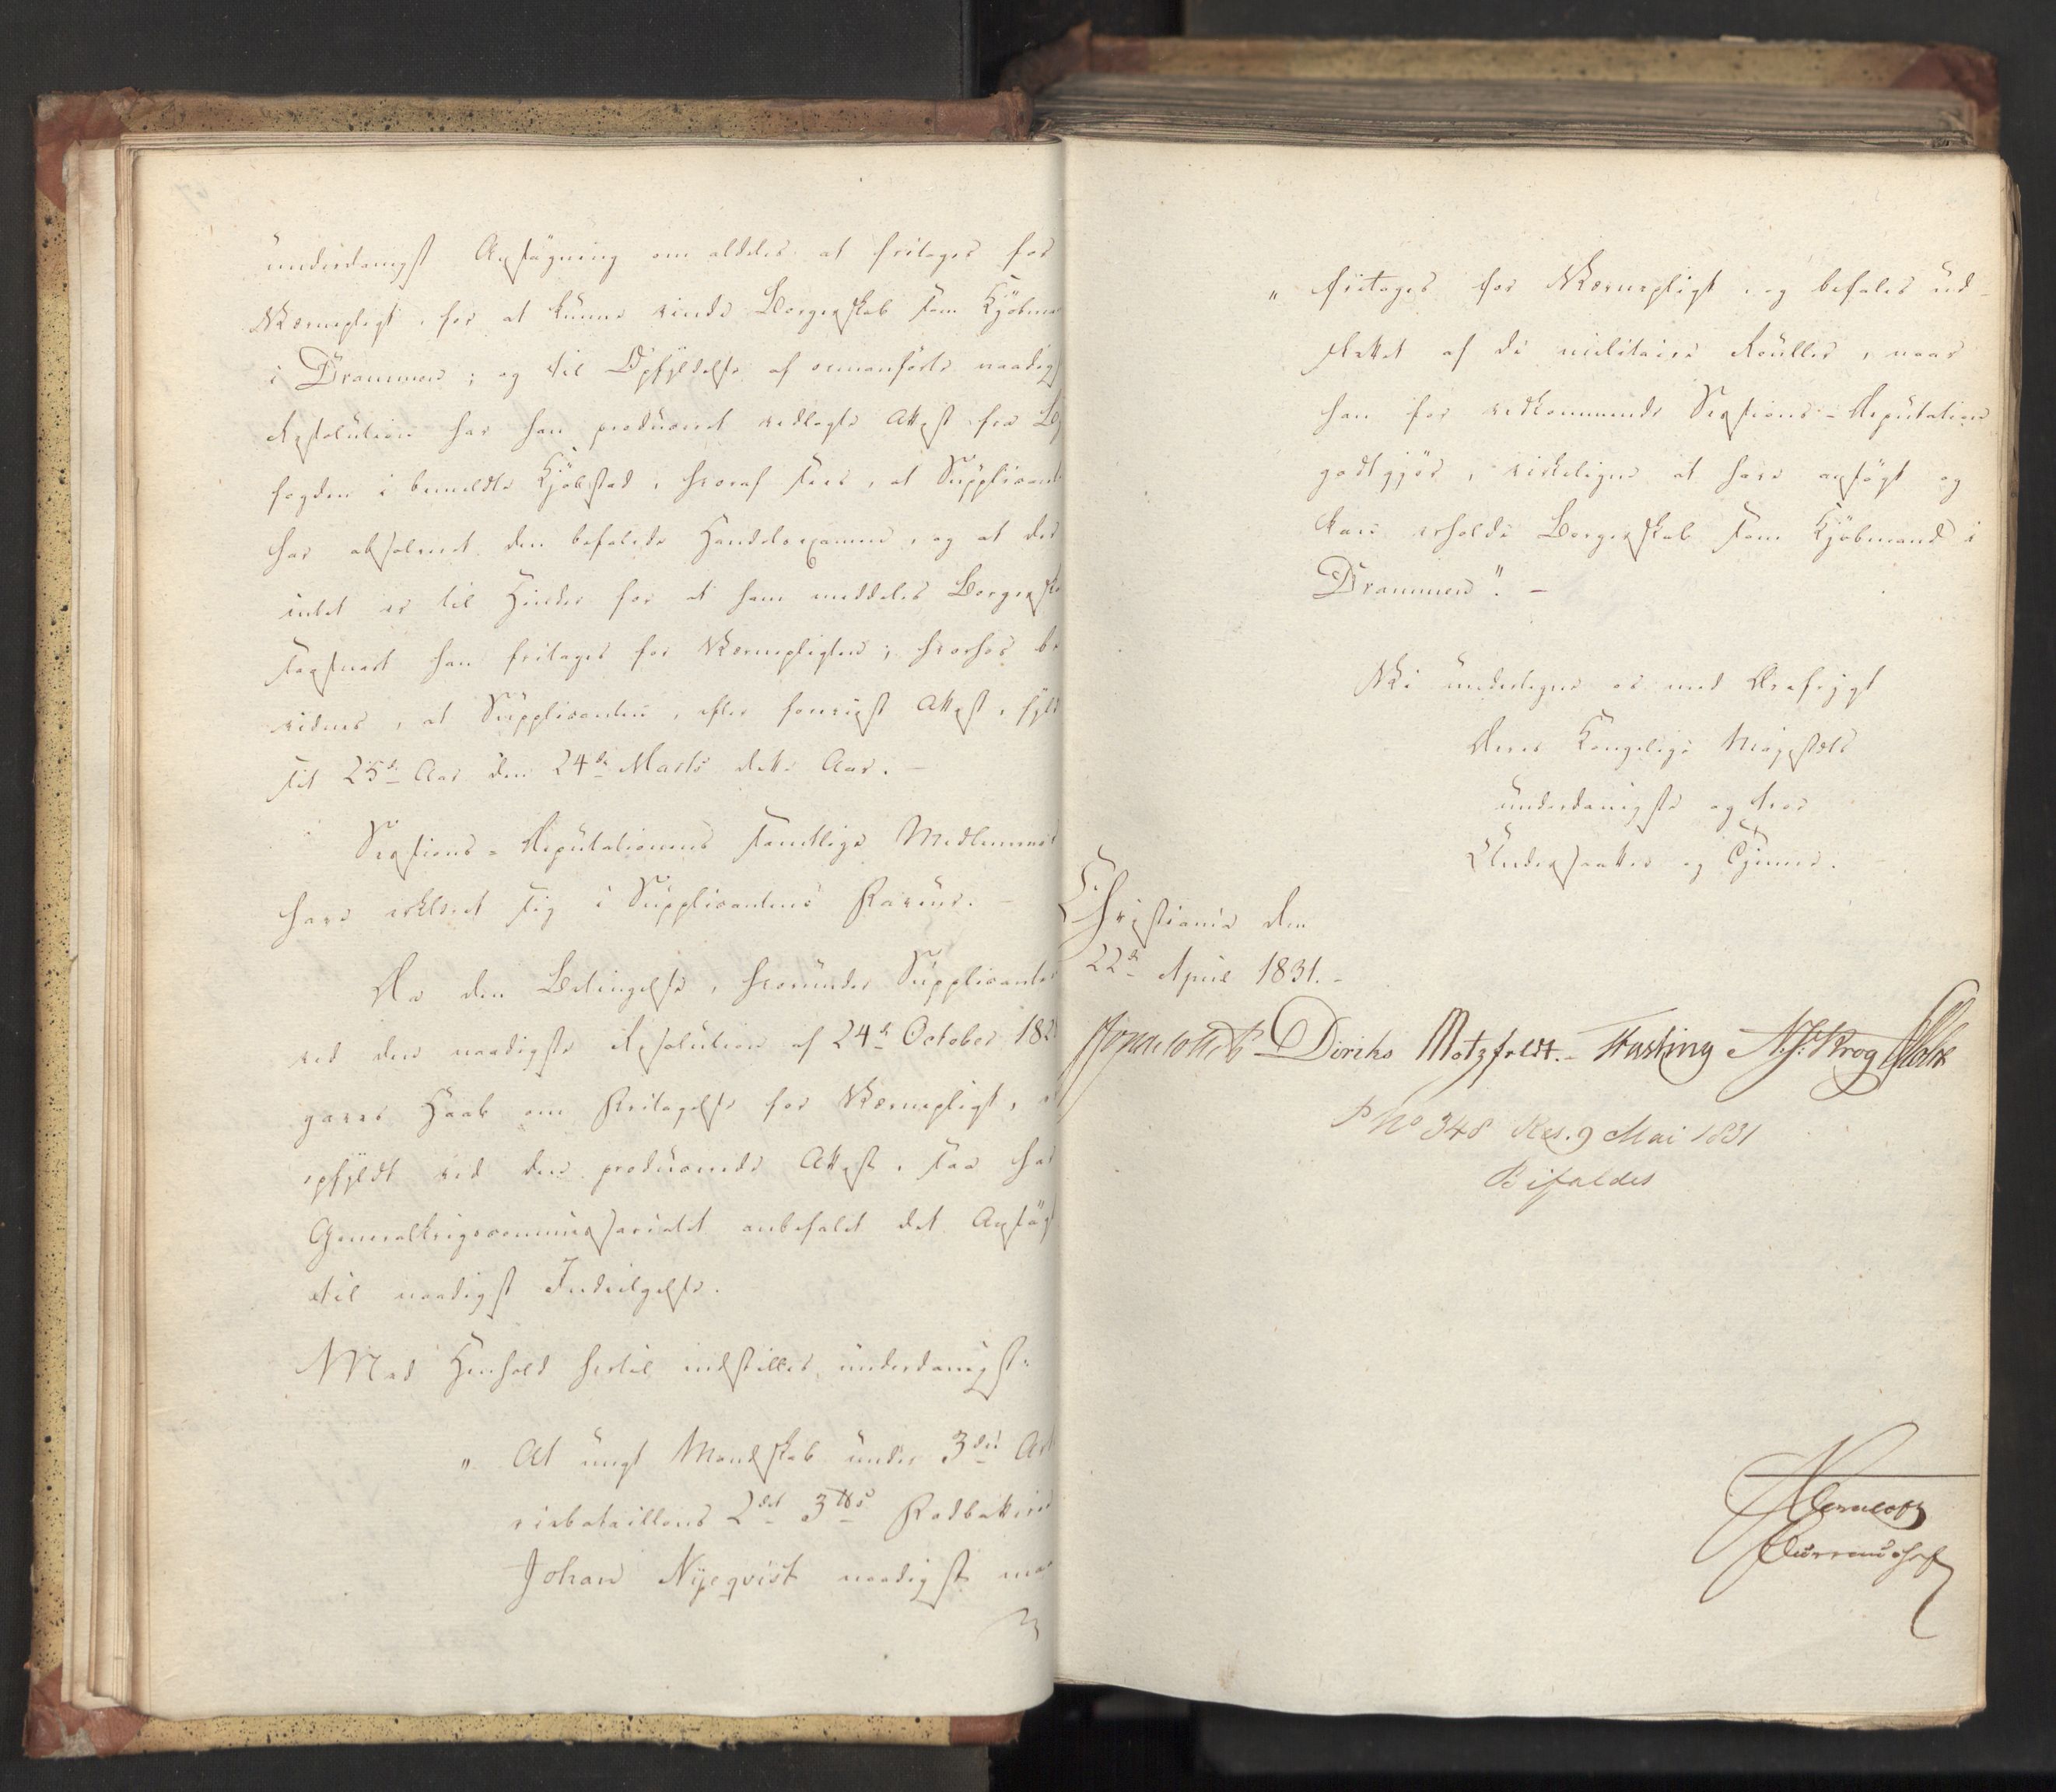 underdanigst Ansøgning om aldeles at fritages for
Værnepligt, for at kunne vinde Borgerskab som Kjøbma
i Drammen; og til Opfyldelse af ovenanførte naadig
Resolution har han produceret vedlagte Attest fra By
fogden i bemeldte Kjøbstad, hvoraf sees, at Supplicant
har absolveret den befalede Handelsexamen, og at der
intet er til Hinder for at ham meddeles Borgerska
saasnart han fritages for Værnepligten; hvorhos be
vidnes, at Supplicanten, efter foreviist Attest, fyld
sit 25de Aar den 24de Marts dette Aar. –
Sessions-Deputationens samtlige Medlemmer
have erklæret sig i Supplicantens Faveur. –
Da den Betingelse, hvorunder Supplicanten
ved den naadigste Resolution af 24de October 182
gaves Haab om Fritagelse for Værnepligt, e
opfyldt ved den producerede Attest, saa har
Generalkrigscommissariatet anbefalet det Ansøg
til naadigst Indvilgelse.
Med Henhold hertil indstilles underdanigst:
„ At ungt Mandskab under 3die Art
riebataillons 2det 3℔s Fodbatterie
Johan Nyeqvist naadigst maa
„ fritages for Værnepligt, og befales ud-
slettet af de militaire Rouller, naar
han for vedkommende Sessions-Deputation
godtgjør, virkeligen at have ansøgt og
kan erholde Borgerskab som Kjøbmand i
Drammen". –
Vi undertegne os med Ærefrygt
Deres Kongelige Majestæts
underdanigste og troe
Undersaatter og Tjenere.
Christiania den
22de April 1831. –
Diriks Motzfeldt. – Fasting N. J. Krog Holst
P No 348 Res. 9 Mai 1831
Bifaldes